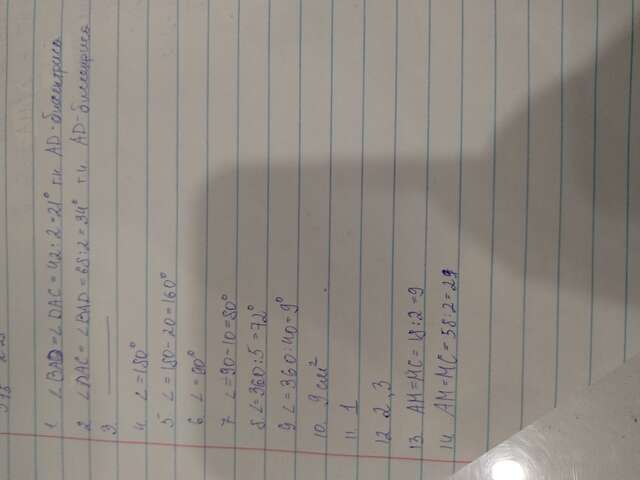 1 ∠BAD=∠DAC=42:2=21° т.к AD-биссектриса
2 ∠DAC=∠BAD=68:2=34° т.к AD-биссектриса
3.
4. ∠=180°
5 ∠=180-20=160°
6 ∠=90°
7 ∠=90-10=80°
8. ∠=360:5=72°
9 ∠=360:40=9°
10. 9 см²
11. 1
12 2,3
13 AM=MC=18:2=9
14 AM=MC=58:2=29